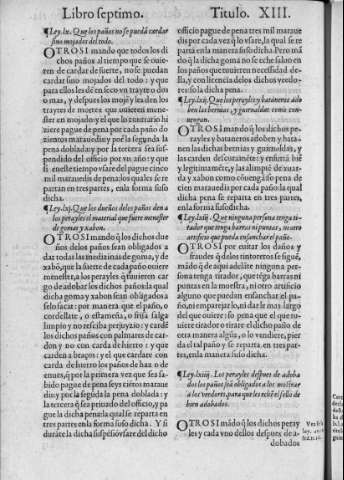 Libro septimo.
Titulo. XIII.
¶Ley.lx. Que los paños no se puedã cardar
sino mojados del todo.
OTROSI mando que todos los di
chos paños al tiempo que se ouie
ren de cardar de fuerte, no se puedan
cardar sino mojados del todo: y que
para ello les dẽ en seco vn trayto o dos
o mas, y despues los moje y les dẽ los
traytos de muertes que ouierẽ menes
ster en mojado: y el que lo contrario hi
ziere pague de pena por cada paño do
zientos marauedis: y por la segunda la
pena doblada: y por la tercera sea sus-
pendido del officio por vn año: y que
si eneste tiẽpo vsare del pague cinco
mil marauedis de pena los quales se re
partan en tres partes, enla forma suso
dicha.
¶Ley.lxj. Que los dueños delos paños den a
los perayles el material que fuere menester
de goma y xabon.
OTROSI mando q̃ los dichos due
ños delos paños sean obligados a
dar todas las medizinas de goma, y de
xabõ, que la suerte de cada paño ouiere
menester, a los perayles q̃ tuuieren car
go de adobar los dichos paños la qual
dicha goma y xabon sean obligados a
selo sacar: por manera que el paño, o
cordellate, o estameña, o frisa salga
limpio y no resciba perjuyzio: y cardẽ
los dichos paños con palmares de car-
don y no con carda de hierro: y que
carden a braços: y el que cardare con
carda de hierro los paños de haz o de
enues, q̃ por la primera vez que sea sa-
bido pague de pena seys ciẽtos maraue
dis: y por la segunda la pena doblada: y
la tercera q̃ sea priuado del officio, y pa
gue la dicha pena la qual se reparta en
tres partes enla forma suso dicha. Y si
durãte la dicha suspẽsiõ vsare del dicho
officio pague de pena tres mil maraue
dis por cada vez q̃ lo vsare, la qual se re
parta enla manera suso dicha. Pero mã
do q̃ la dicha goma no se eche saluo en
los paños que ouieren necessidad de-
lla, y con licencia delos dichos veedo-
res: so la dicha pena.
¶Ley.lxij. Que los perayles y bataneros ado
ben las bernias, y guirnaldas como con-
uengan.
OTROSI mando q̃ los dichos pe-
rayles y bataneros adoben y bata-
nen las dichas bernias y guirnaldas, y
las carden desuarañete: y enfurtã biẽ
y legitimamẽte, y las alimpiẽ de xuar-
da y xabon como cõuẽga so pena de
cien marauedis por cada paño: la qual
dicha pena se reparta en tres partes,
enla forma suso dicha.
¶Ley.lxiij. Que ninguna persona tenga ti-
rador que tenga barras ni puntas, ni otro
artificio que pueda ensanchar el paño.
OTROSI por euitar los daños y
fraudes q̃ delos tintoreros se siguẽ,
mãdo q̃ de aqui adelãte ninguna per-
sona tenga tirador, que tẽga barras ni
puntas en la muestra, ni otro artificio
alguno que puedan ensanchar el pa-
ño, ni emparejarlo, ni dar le mas largo
del que ouiere: so pena que el que tu-
uiere tirador o tirare el dicho paño de
otra manera algũa, o lo vendiere, pier
da el tal paño y se reparta en tres par-
tes, enla manera suso dicha.
¶Ley.lxiiij. Los perayles despues de adoba
dos los paños seã obligados a los mostrar
a los veedores para que les echẽ el sello de
bien adobados.
OTROSI mãdo q̃ los dichos pe
rayles y cada vno dellos despues de a-
dobados